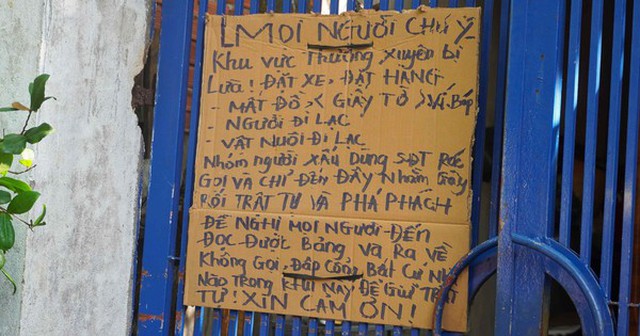 MỌI NGƯỜI CHÚ Ý
Khu vực Thường xuyên bị
Lừa! ĐẶT XE, ĐẶT HÀNG
- MẤT ĐỒ < GIẤY TỜ > Ví, Bóp
- NGƯỜI ĐI LẠC
- VẬT NUÔI ĐI LẠC
Nhóm người XẤU DÙNG SĐT RÁC
GỌI VÀ CHỈ ĐẾN ĐÂY NHẰM GÂY
RỐI TRẬT TỰ VÀ PHÁ PHÁCH
ĐỀ NGHỊ MỌI NGƯỜI ĐẾN
ĐỌC ĐƯỢC BẢNG VÀ RA VỀ
KHÔNG GỌI, ĐẬP CỔNG BẤT CỨ NHÀ
NÀO TRONG KHU NÀY ĐỂ GIỮ TRẬT
TỰ! XIN CÁM ƠN!